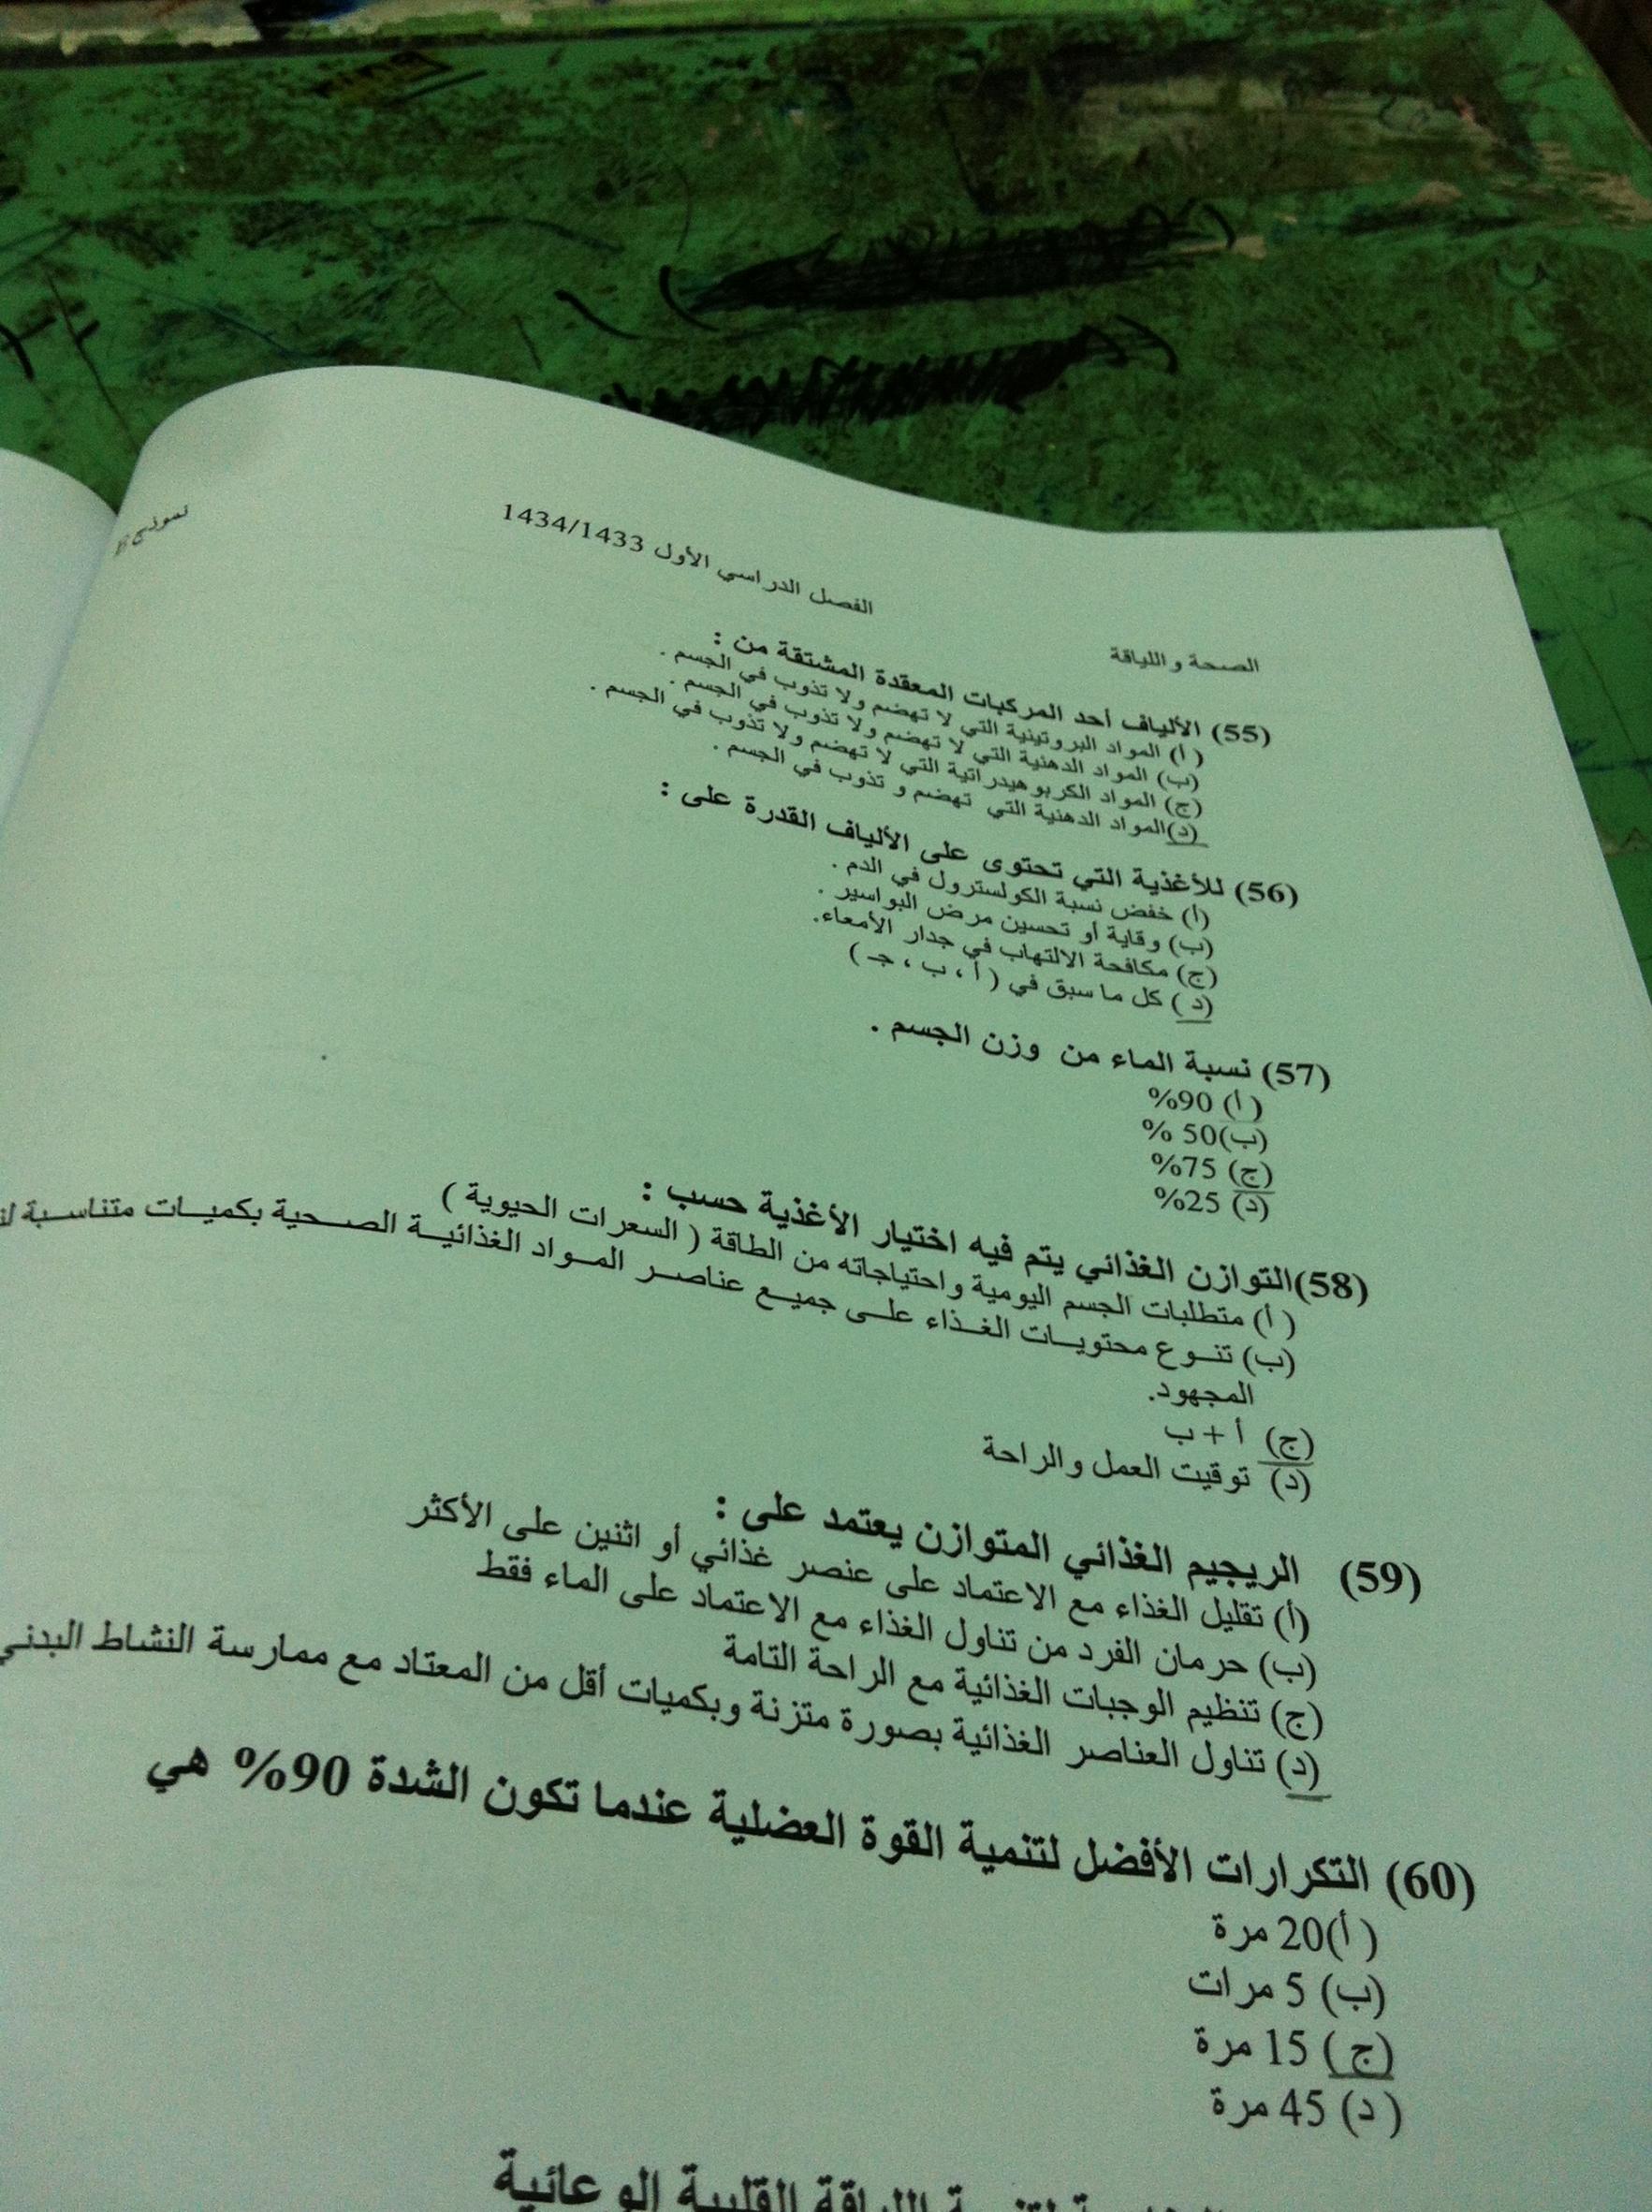 الصحة واللياقة الفصل الدراسي الأول 1434/1433 نموذج
(55) الألياف أحد المركبات المعقدة المشتقة من :
( أ ) المواد البروتينية التي لا تهضم ولا تذوب في الجسم .
(ب) المواد الدهنية التي لا تهضم ولا تذوب في الجسم .
(ج) المواد الكربوهيدراتية التي لا تهضم ولا تذوب في الجسم .
(د)المواد الدهنية التي تهضم و تذوب في الجسم .
(56) للأغذية التي تحتوى على الألياف القدرة على :
(أ) خفض نسبة الكولسترول في الدم .
(ب) وقاية أو تحسين مرض البواسير .
(ج) مكافحة الالتهاب في جدار الأمعاء.
(د ) كل ما سبق في ( أ ، ب ، جـ )
(57) نسبة الماء من وزن الجسم .
( أ ) 90%
(ب)50 %
(ج) 75%
(د) 25%
(58)التوازن الغذائي يتم فيه اختيار الأغذية حسب :
( أ ) متطلبات الجسم اليومية واحتياجاته من الطاقة ( السعرات الحيوية )
(ب) تنـوع محتويـات الغـذاء علـى جميـع عناصـر المـواد الغذائيـة الصـحية بكميـات متناسـبة
المجهود.
(ج) أ + ب
(د) توقيت العمل والراحة
(59) الريجيم الغذائي المتوازن يعتمد على :
(أ) تقليل الغذاء مع الاعتماد على عنصر غذائي أو اثنين على الأكثر
(ب) حرمان الفرد من تناول الغذاء مع الاعتماد على الماء فقط
(ج) تنظيم الوجبات الغذائية مع الراحة التامة
(د) تناول العناصر الغذائية بصورة متزنة وبكميات أقل من المعتاد مع ممارسة النشاط البدني
(60) التكرارات الأفضل لتنمية القوة العضلية عندما تكون الشدة 90% هي
( أ)20 مرة
(ب) 5 مرات
(ج ) 15 مرة
( د) 45 مرة
اللياقة القلبية الوعائية